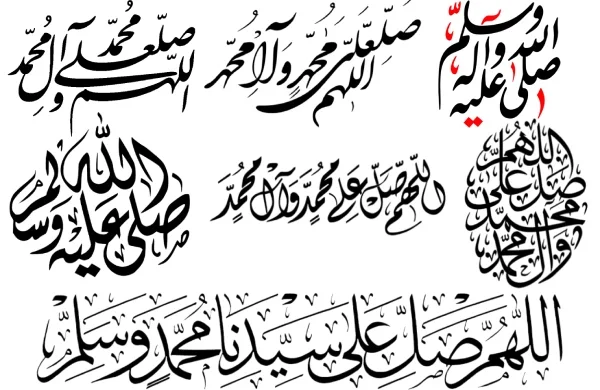 صلى الله عليه وآله وسلم
اللهم صل على محمد وآل محمد
اللهم صل على محمد وآل محمد
اللهم صل على محمد وآل محمد
اللهم صل على محمد وآل محمد
صلى الله عليه وسلم
اللهم صل على سيدنا محمد وسلم